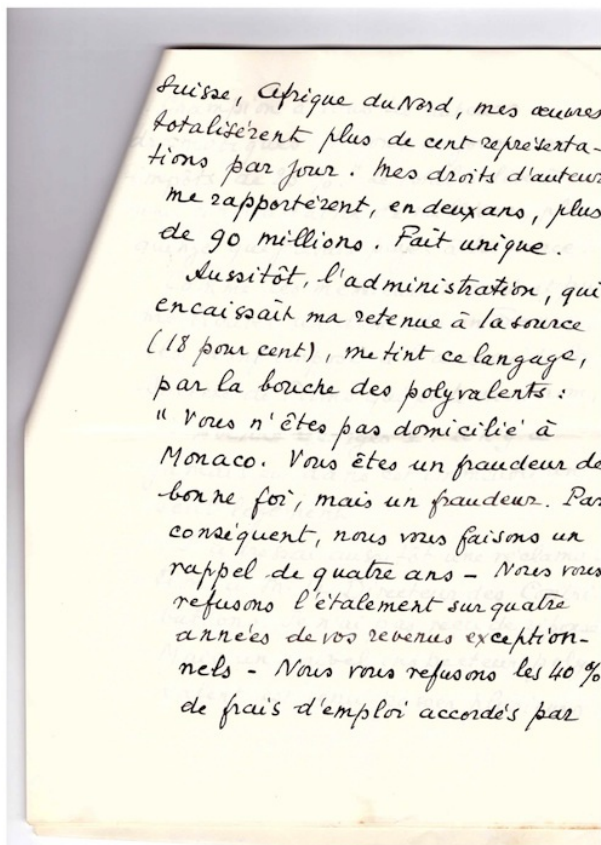 Suisse, Afrique du Nord, mes œuvres
totalisèrent plus de cent représenta-
tions par jour. Mes droits d'auteur
me rapportèrent, en deux ans, plus
de 90 millions. Fait unique.
Aussitôt, l'administration, qui
encaissait ma retenue à la source
(18 pour cent), me tint ce langage,
par la bouche des polyvalents :
" Vous n'êtes pas domicilié à
Monaco. Vous êtes un fraudeur de
bonne foi, mais un fraudeur. Par
conséquent, nous vous faisons un
rappel de quatre ans - Nous vous
refusons l'étalement sur quatre
années de vos revenus exception-
nels - Nous vous refusons les 40 %
de frais d'emploi accordés par